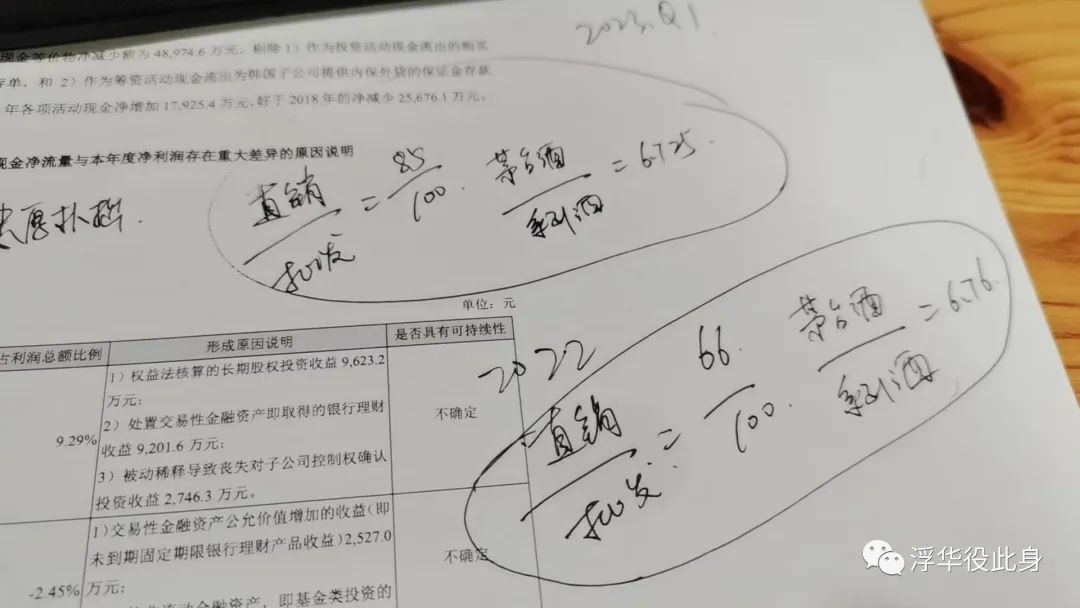 2023.Q1
现金等价物净减少额为 48,974.6 万元，剔除 1）作为投资活动现金流出的购买
存单，和 2）作为筹资活动现金流出为韩国子公司提供内保外贷的保证金存款
年各项活动现金净增加 17,925.4 万元，好于 2018 年的净减少 25,676.1 万元。
现金净流量与本年度净利润存在重大差异的原因说明
直销/批发 = 85/100. 茅台酒/系列酒 = 6.725
单位：元
占利润总额比例 形成原因说明 是否具有可持续性
9.29% 1）权益法核算的长期股权投资收益 9,623.2
万元；
2）处置交易性金融资产即取得的银行理财
收益 9,201.6 万元；
3）被动稀释导致丧失对子公司控制权确认
投资收益 2,746.3 万元。
不确定
-2.45% 1)交易性金融资产公允价值增加的收益(即
未到期固定期限银行理财产品收益)2,527.0
万元；
不确定
非流动金融资产，即基金类投资的
2022
直销/批发 = 66/100. 茅台酒/系列酒 = 6.76.
浮华役此身